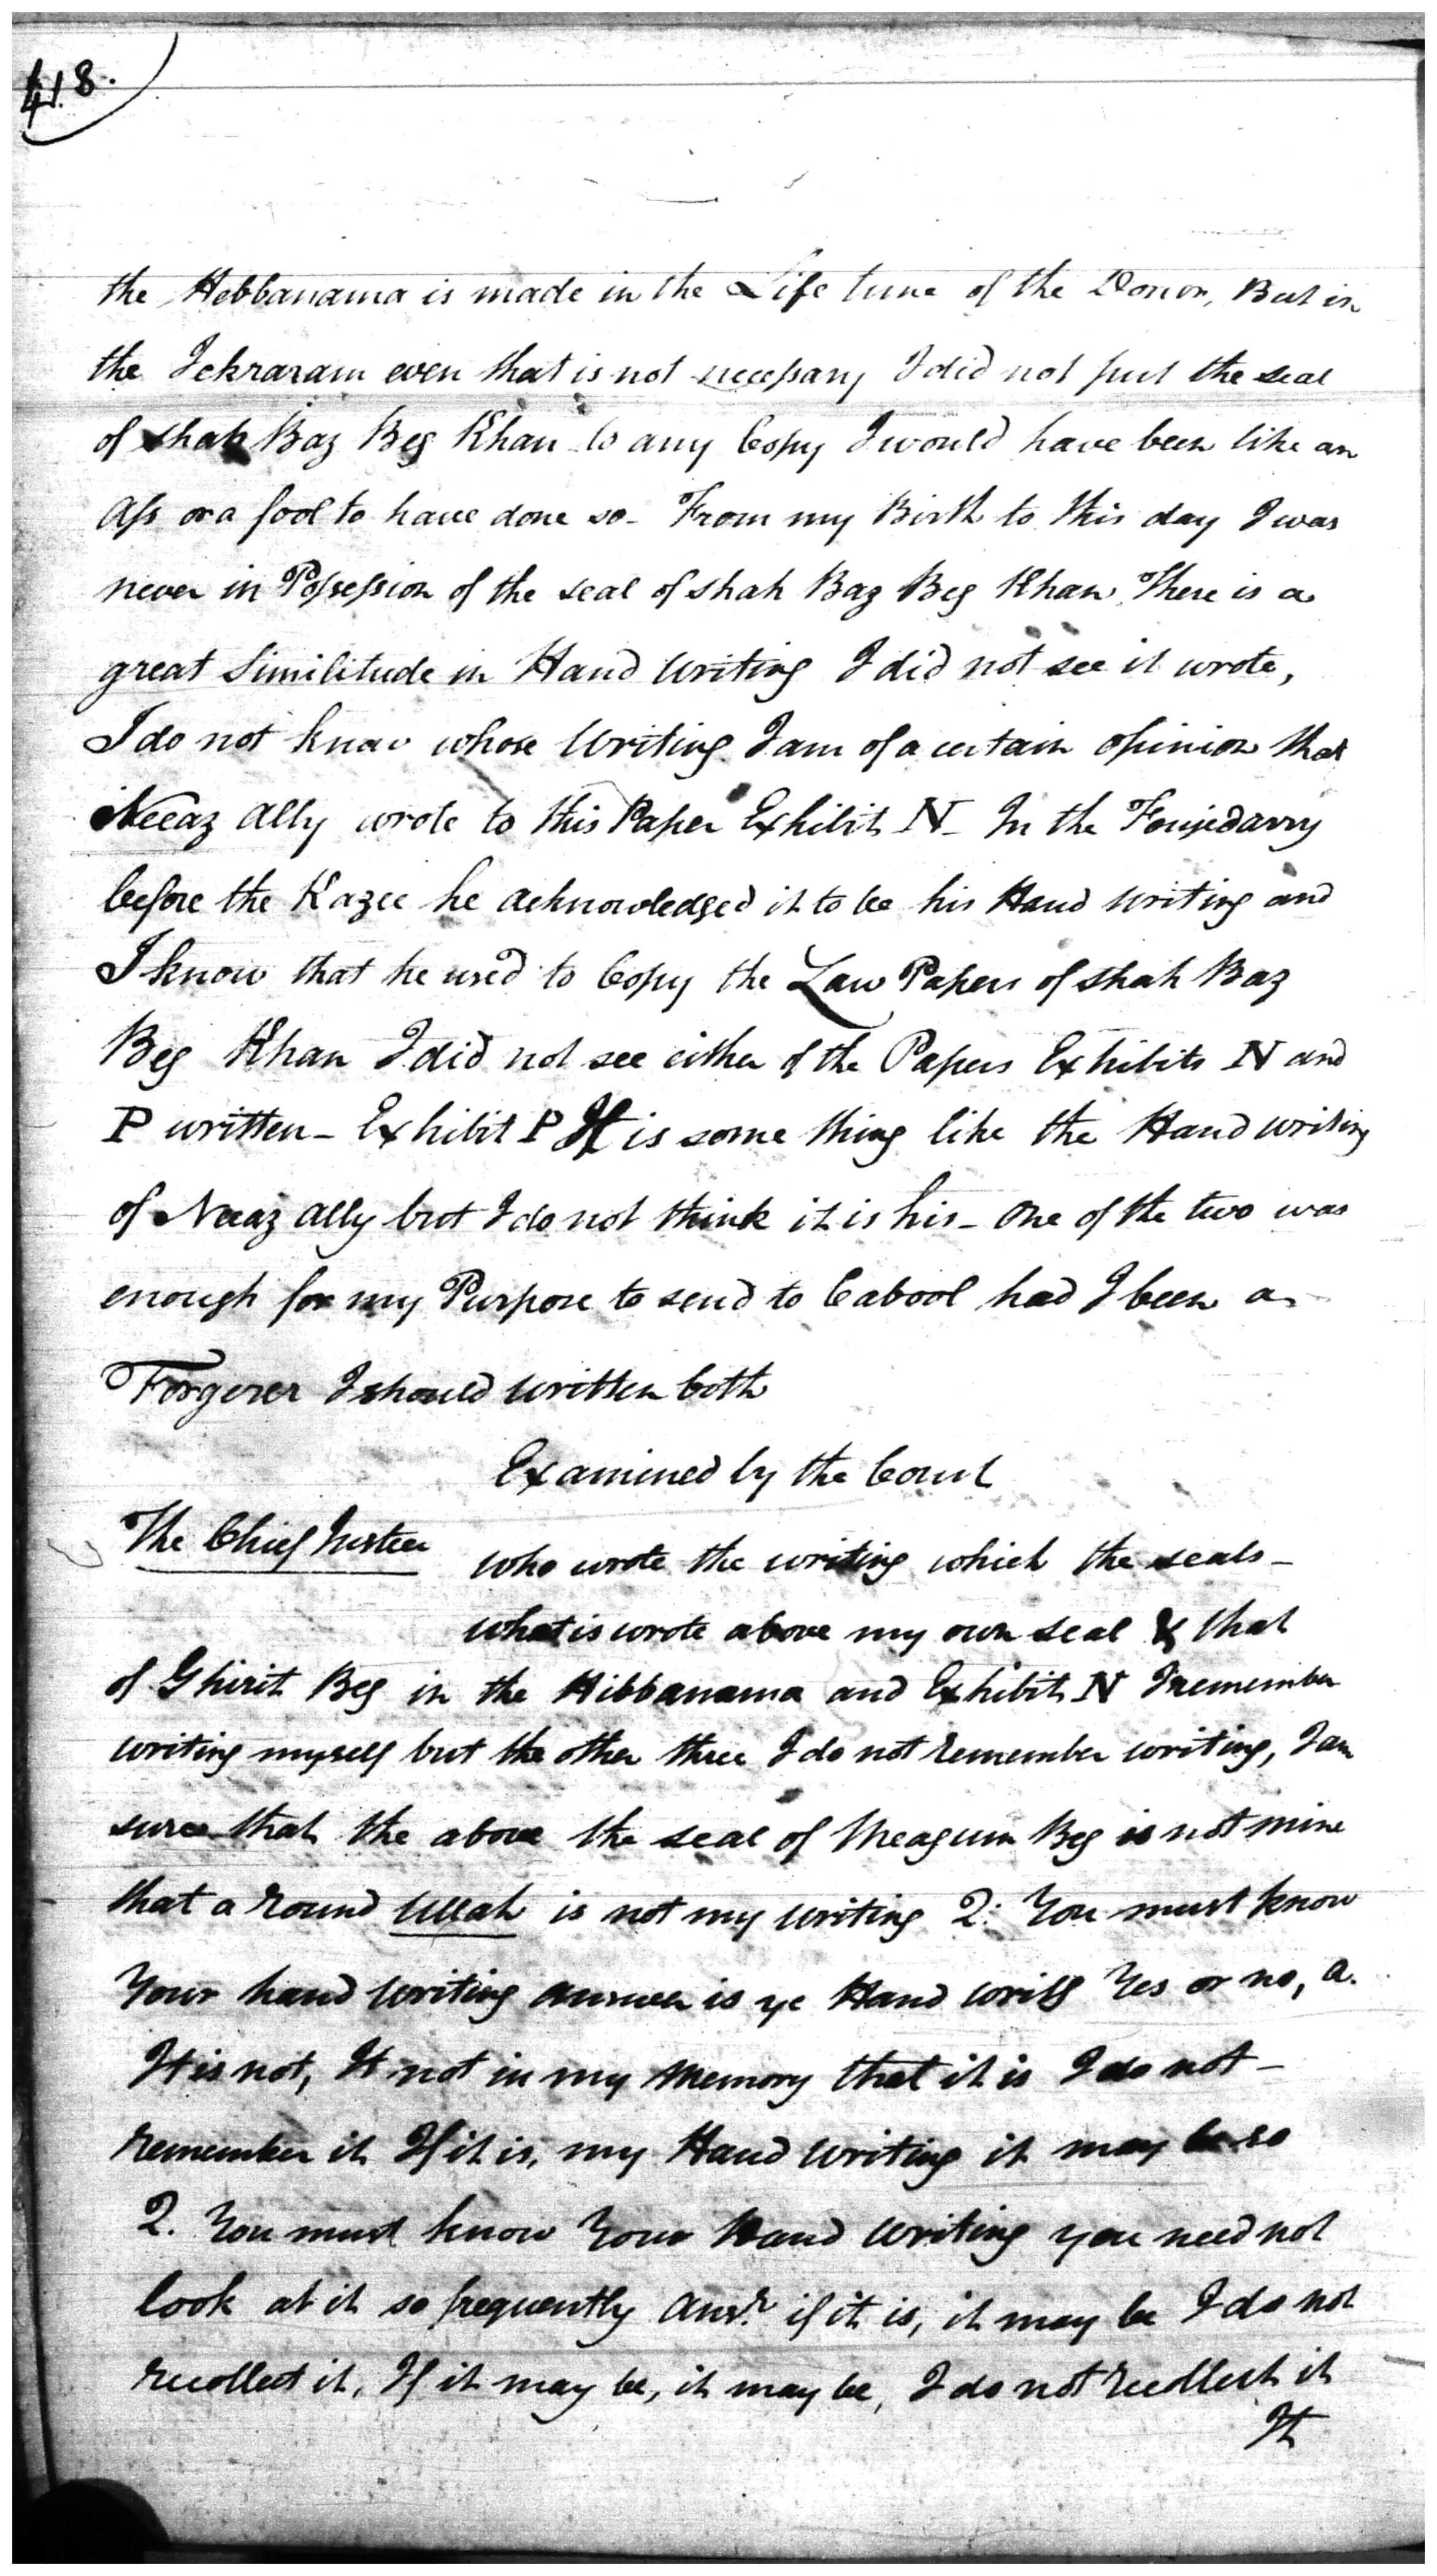 418.
the Hebbanama is made in the Life time of the Donor, But in
the Ickraram even that is not necessary I did not put the seal
of Shah Baz Beg Khan to any Copy I would have been like an
Ass or a fool to have done so - From my Birth to this day I was
never in Possession of the seal of Shah Baz Beg Khan, There is a
great Similitude in Hand Writing I did not see it wrote,
I do not know whose Writing I am of a certain opinion that
Neeaz Ally wrote to this Paper Exhibit N - In the Foujedarry
before the Kazee he acknowledged it to be his Hand writing and
I know that he used to Copy the Law Papers of Shah Baz
Beg Khan I did not see either of the Papers Exhibits N and
P written - Exhibit P It is some thing like the Hand writing
of Neeaz Ally but I do not think it is his - One of the two was
enough for my Purpose to send to Cabool had I been a
Forgerer I should written both
Examined by the Court
The Chief Justice who wrote the writing which the seals -
what is wrote above my own seal & that
of Ghirit Beg in the Hibbanama and Exhibit N I remember
writing myself but the other three I do not remember writing, I am
sure that the above the seal of Meagum Beg is not mine
that a round Ullah is not my writing Q: You must know
Your hand writing answer is ye Hand writg Yes or no, a.
It is not, It not in my Memory that it is I do not -
remember it If it is, my Hand writing it may be so
Q. You must know Your Hand writing you need not
look at it so frequently Answr. if it is, it may be I do not
recollect it, If it may be, it may be, I do not recollect it
It